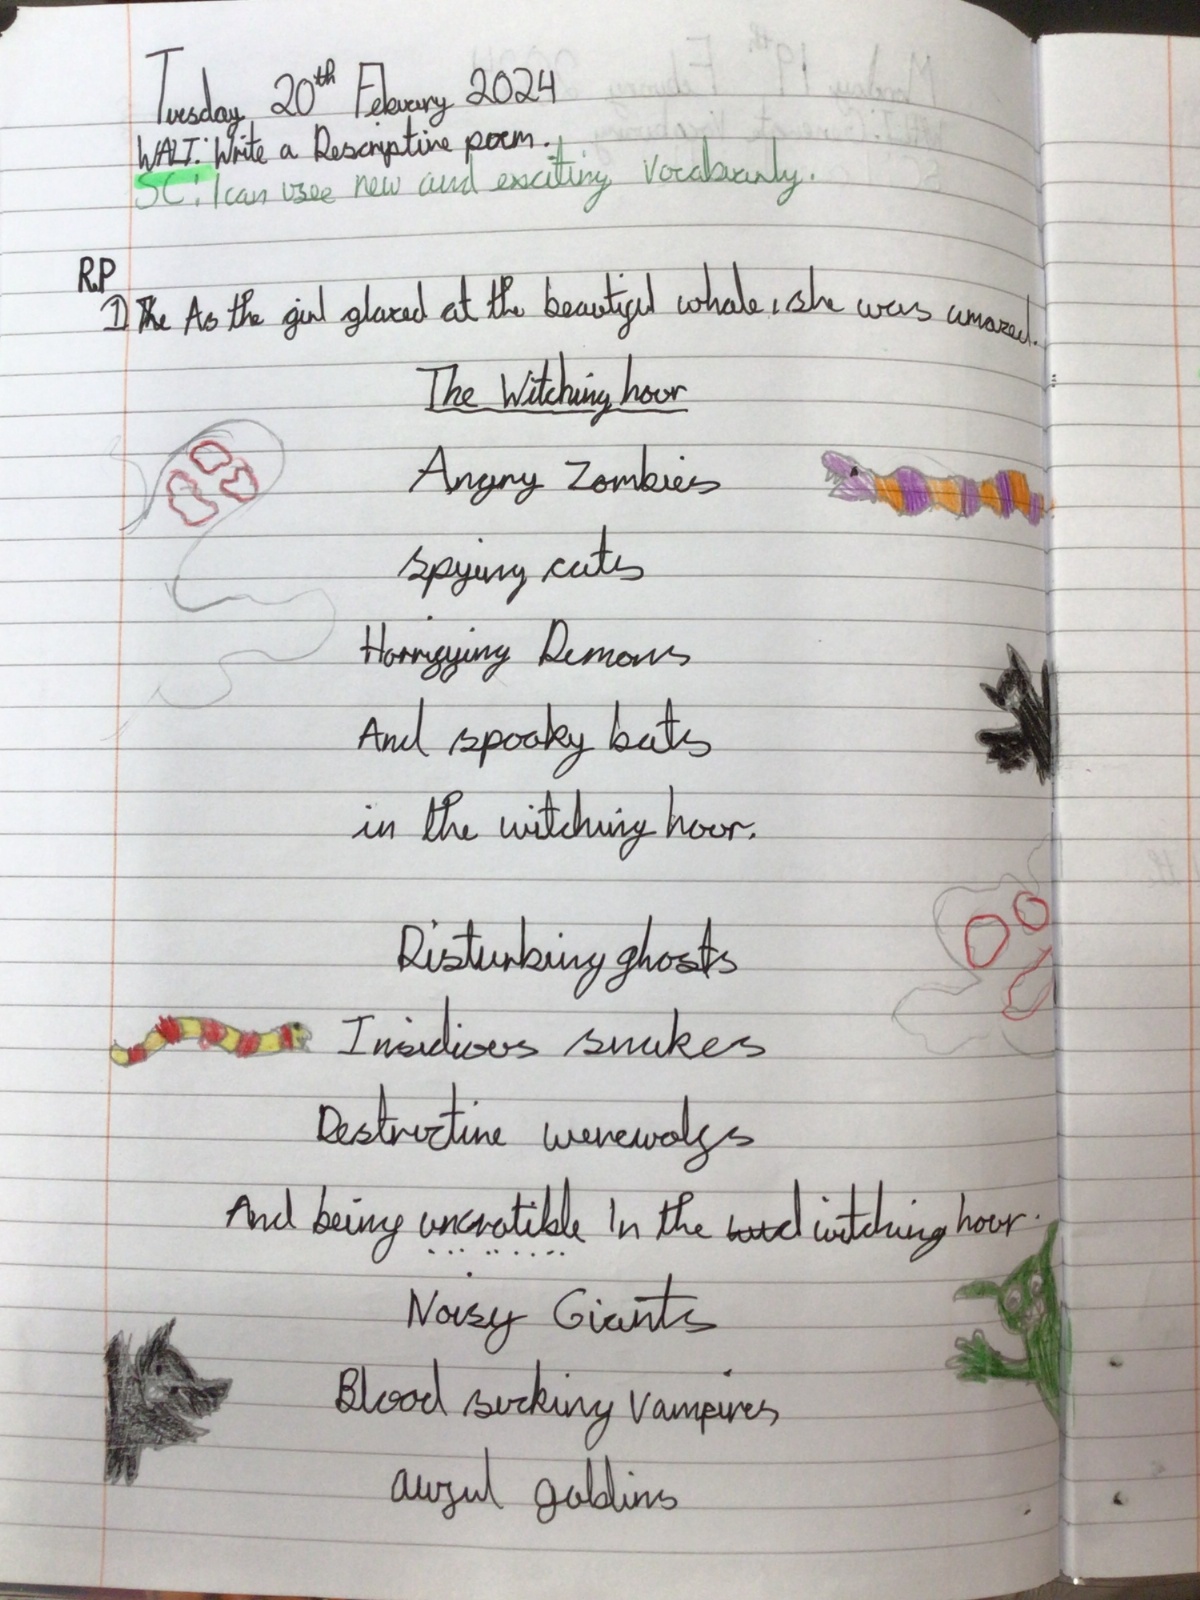 Tuesday 20th Febuary 2024
WALT: Write a Descriptive poem.
SC: I can usee new and exciting vocabuarly.
R.P
1) The As the girl glazed at the beautiful whale, she was amazed.
The Witching hour
Angry Zombies
spying cats
Horrifying Demons
And spooky bats
in the witching hour.
Disturbing ghosts
Insidious snakes
Destructive werewolfs
And being uncratible In the witching hour.
Noisy Giants
Blood sucking vampires
awful goblins